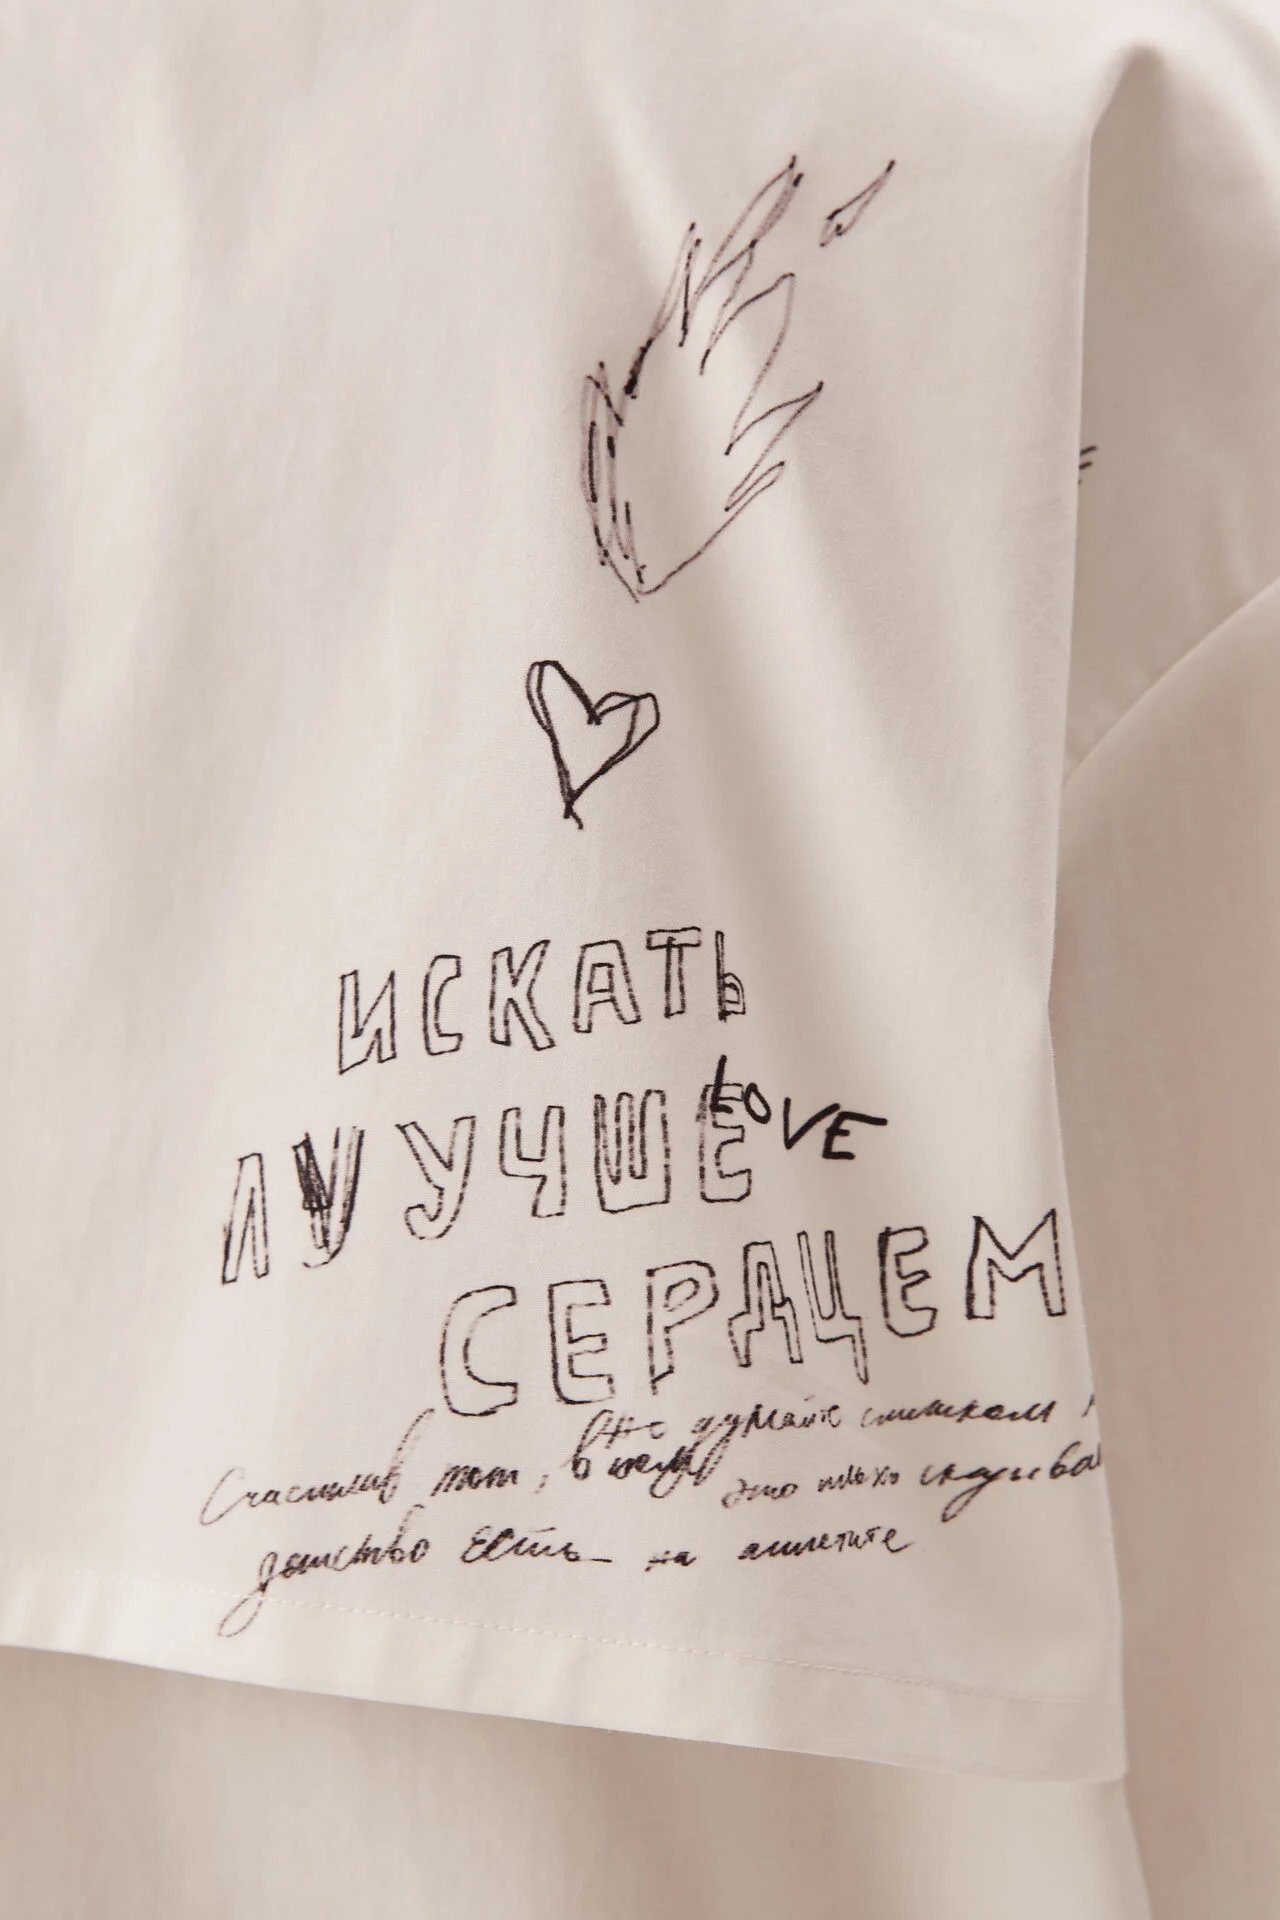 ИСКАТЬ
ЛУЧШЕ
LOVE
СЕРДЦЕМ
Не думайте слишком
Счастлив тот, в ком
это плохо
детство есть
на аппетите